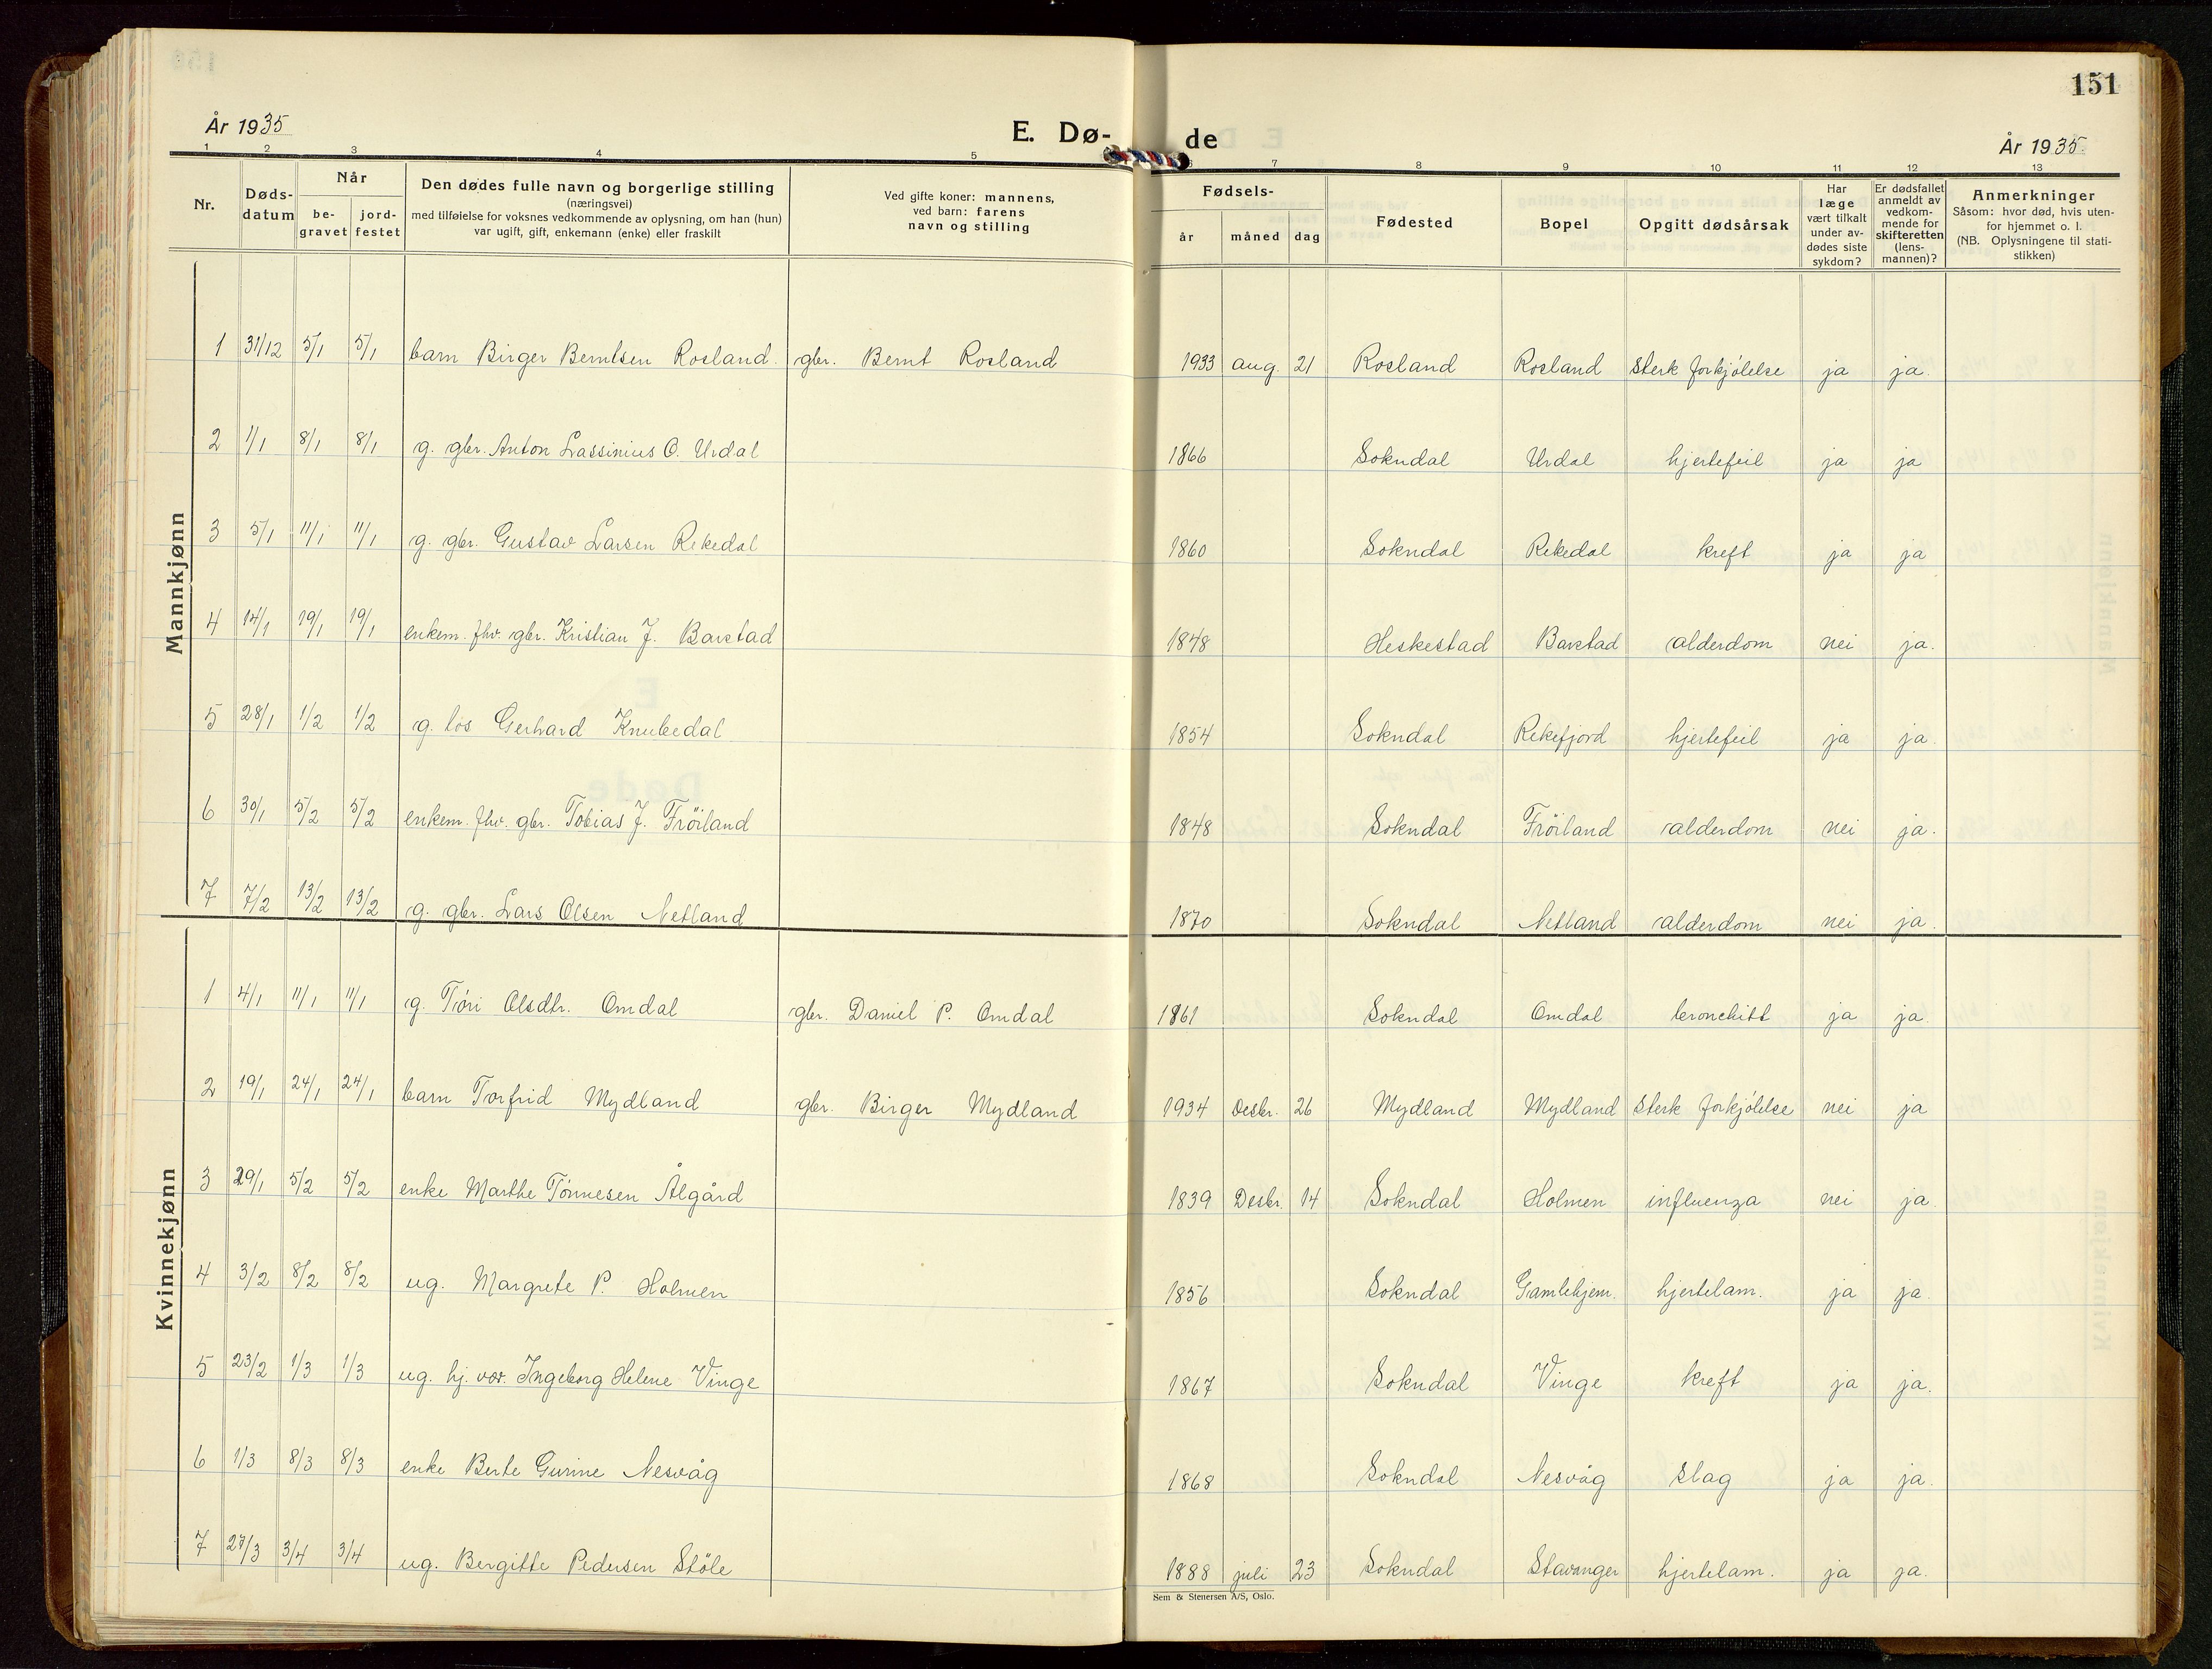 151
År 1935
E. Dø-
de
År 1935
1 2 3 4 5 6 7 8 9 10 11 12 13
Nr.
Døds-
datum
Når
be-
gravet
jord-
festet
Den dødes fulle navn og borgerlige stilling
(næringsvei)
med tilføielse for voksnes vedkommende av oplysning, om han (hun)
var ugift, gift, enkemann (enke) eller fraskilt
Ved gifte koner: mannens,
ved barn: farens
navn og stilling
Fødsels-
år måned dag
Fødested
Bopel
Opgitt dødsårsak
Har
læge
vært tilkalt
under av-
dødes siste
sykdom?
Er dødsfallet
anmeldt av
vedkom-
mende for
skifteretten
(lens-
mannen)?
Anmerkninger
Såsom: hvor død, hvis uten-
for hjemmet o. l.
(NB. Oplysningene til stati-
stikken)
Mannkjønn
1 31/12 5/1 5/1 barn Birger Berntsen Rosland. gbr. Bernt Rosland 1933 aug. 21 Rosland Rosland Sterk forkjölelse ja ja.
2 1/1 8/1 8/1 g. gbr. Anton Lassinius O. Urdal 1866 Sokndal Urdal hjertefeil ja ja
3 5/1 11/1 11/1 g. gbr. Gustav Larsen Rekedal 1860 Sokndal Rekedal kreft ja ja
4 14/1 19/1 19/1 enkem. fhv. gbr. Kristian J. Barstad 1848 Heskestad Barstad alderdom nei ja.
5 28/1 1/2 1/2 g. los Gerhard Knubedal 1854 Sokndal Rekefjord hjertefeil ja ja.
6 30/1 5/2 5/2 enkem. fhv. gbr. Tobias J. Fröiland 1848 Sokndal Fröiland alderdom nei ja.
7 7/2 13/2 13/2 g. gbr. Lars Olsen Netland 1870 Sokndal Netland alderdom nei ja.
Kvinnekjønn
1 4/1 11/1 11/1 g. Töri Olsdtr. Omdal gbr. Daniel P. Omdal 1861 Sokndal Omdal bronchitt ja ja.
2 19/1 24/1 24/1 barn Torfrid Mydland gbr. Birger Mydland 1934 Desbr. 26 Mydland Mydland Sterk forkjölelse nei ja
3 29/1 5/2 5/2 enke Marthe Tönnesen Ålgård 1839 Desbr. 14 Sokndal Holmen influenza nei ja
4 3/2 8/2 8/2 ug. Margrete P. Holmen 1856 Sokndal Gamlehjem. hjertelam. ja ja.
5 23/2 1/3 1/3 ug. hj. vær. Ingeborg Helene Vinge 1867 Sokndal Vinge kreft ja ja.
6 1/3 8/3 8/3 enke Berte Gurine Nesvåg 1868 Sokndal Nesvåg slag ja ja.
7 27/3 3/4 3/4 ug. Bergitte Pedersen Stöle 1888 juli 23 Sokndal Stavanger hjertelam. ja ja.
Sem & Stenersen A/S, Oslo.